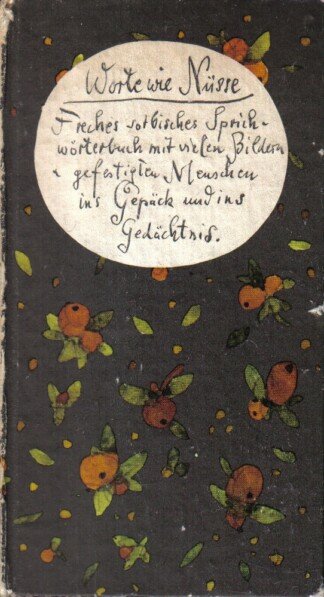 Worte wie Nüsse
Freches sorbisches Sprich-
wörterbuch mit vielen Bildern
gefestigten Menschen
ins Gepäck und ins
Gedächtnis.